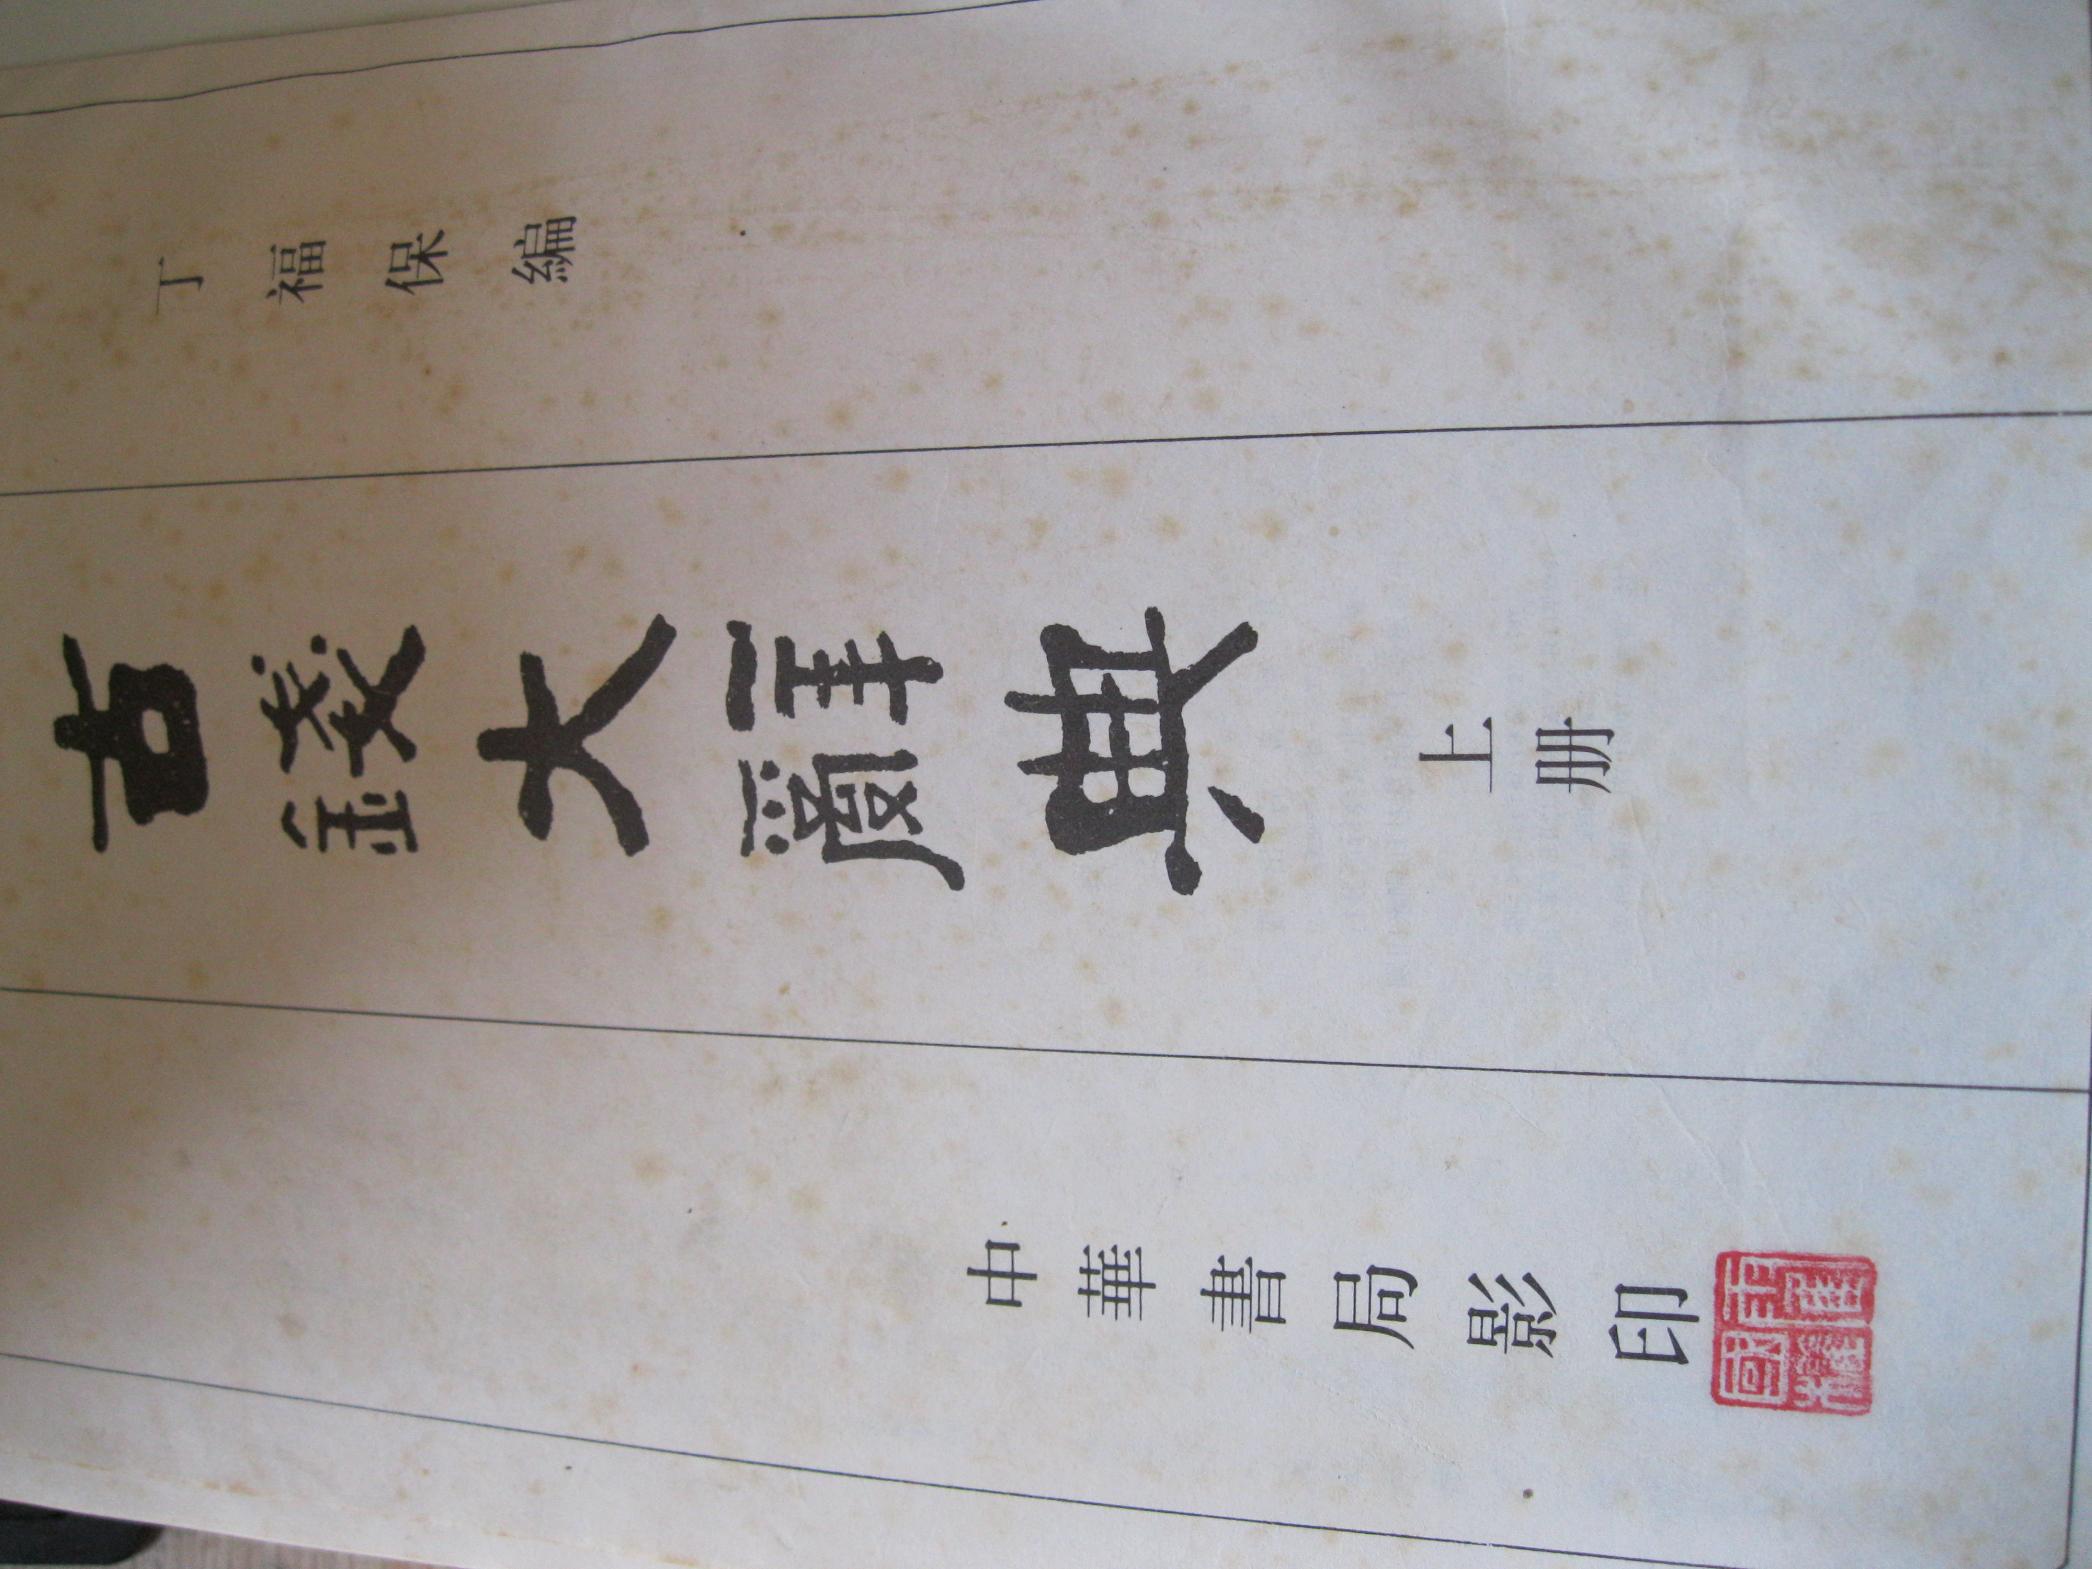 丁福保編
古錢大辭典
上册
中華書局影印